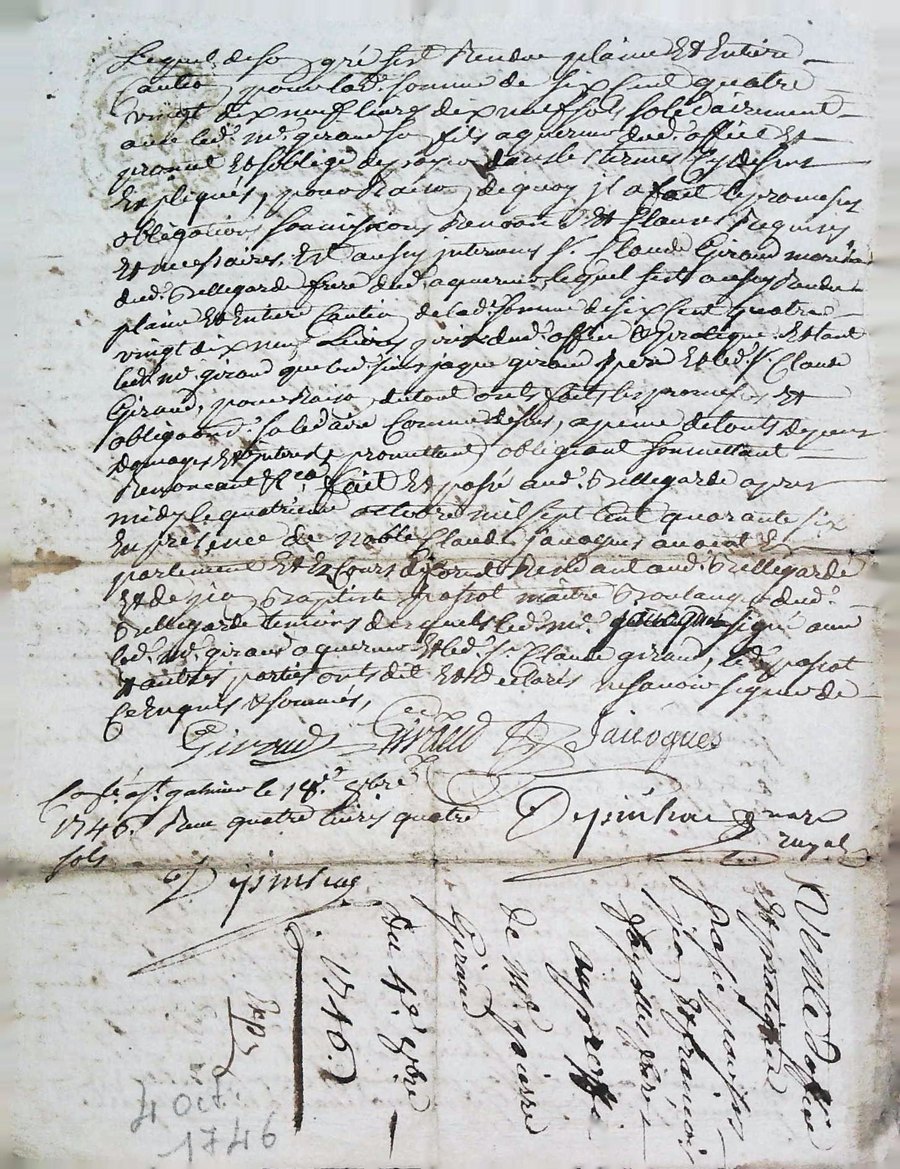 Lequel de so gré sest Rendue plaine Et Entiere
Cautio pour lad. somme de six cent quatre
vingt dix neuf livres dix neuf sols solidairement
avec led. me. giraud so fils aquereur dud. office Et
promet Et soblige de payer dans le termes Cy dessus
Expliqués, pour Raiso de quoy il a fait les promesses
obligations soumissions Renon Et Clauses Requises
Et necessaires. Est aussy intervenu sr. Claude Giraud marchand
dud. Bellegarde frere dud. aquereur lequel sest aussy Rendu
plaine Et Entiere Cautio de lad. somme de six cent quatre
vingt dix neuf Livres prix dud. office Et pratique. Et tant
led. me. giraud que led. sieur jaque giraud pere Et led. sr. Claude
Giraud, pour Raiso du tout ont faits les promesses Et
obligaons. solidaire Comme dessus, a peine de touts depens
domages Et interets promettant obligeant soumettant
Renonceant &ca fait Et passé aud. Bellegarde apres
midy le quatrieme octobre mil sept cent quarante six
En presence de noble Claude Jacogues avocat En
parlement Et Es Cours de forest Residant aud. Bellegarde
Et de jea Baptiste passot maitre Boulanger dud.
Bellegarde temoins desquels led. me. signé avec
led. me. giraud aquereur Et led. sr. Claude giraud, led. passot
Et autres parties ont dit Et declarés ne savoir signer de
Ce Enquis Et sommés,
Giraud Giraud Jacogues
le 14e. 8bre
1746. Reçu quatre livres quatre
sols
Depinhac
royal
Depinhac
Vente doffice
Et pratique
passé par
jea Et francois
a
de Me. pierre
Giraud
Du 4e. 8bre
1746.
4 oct.
1746